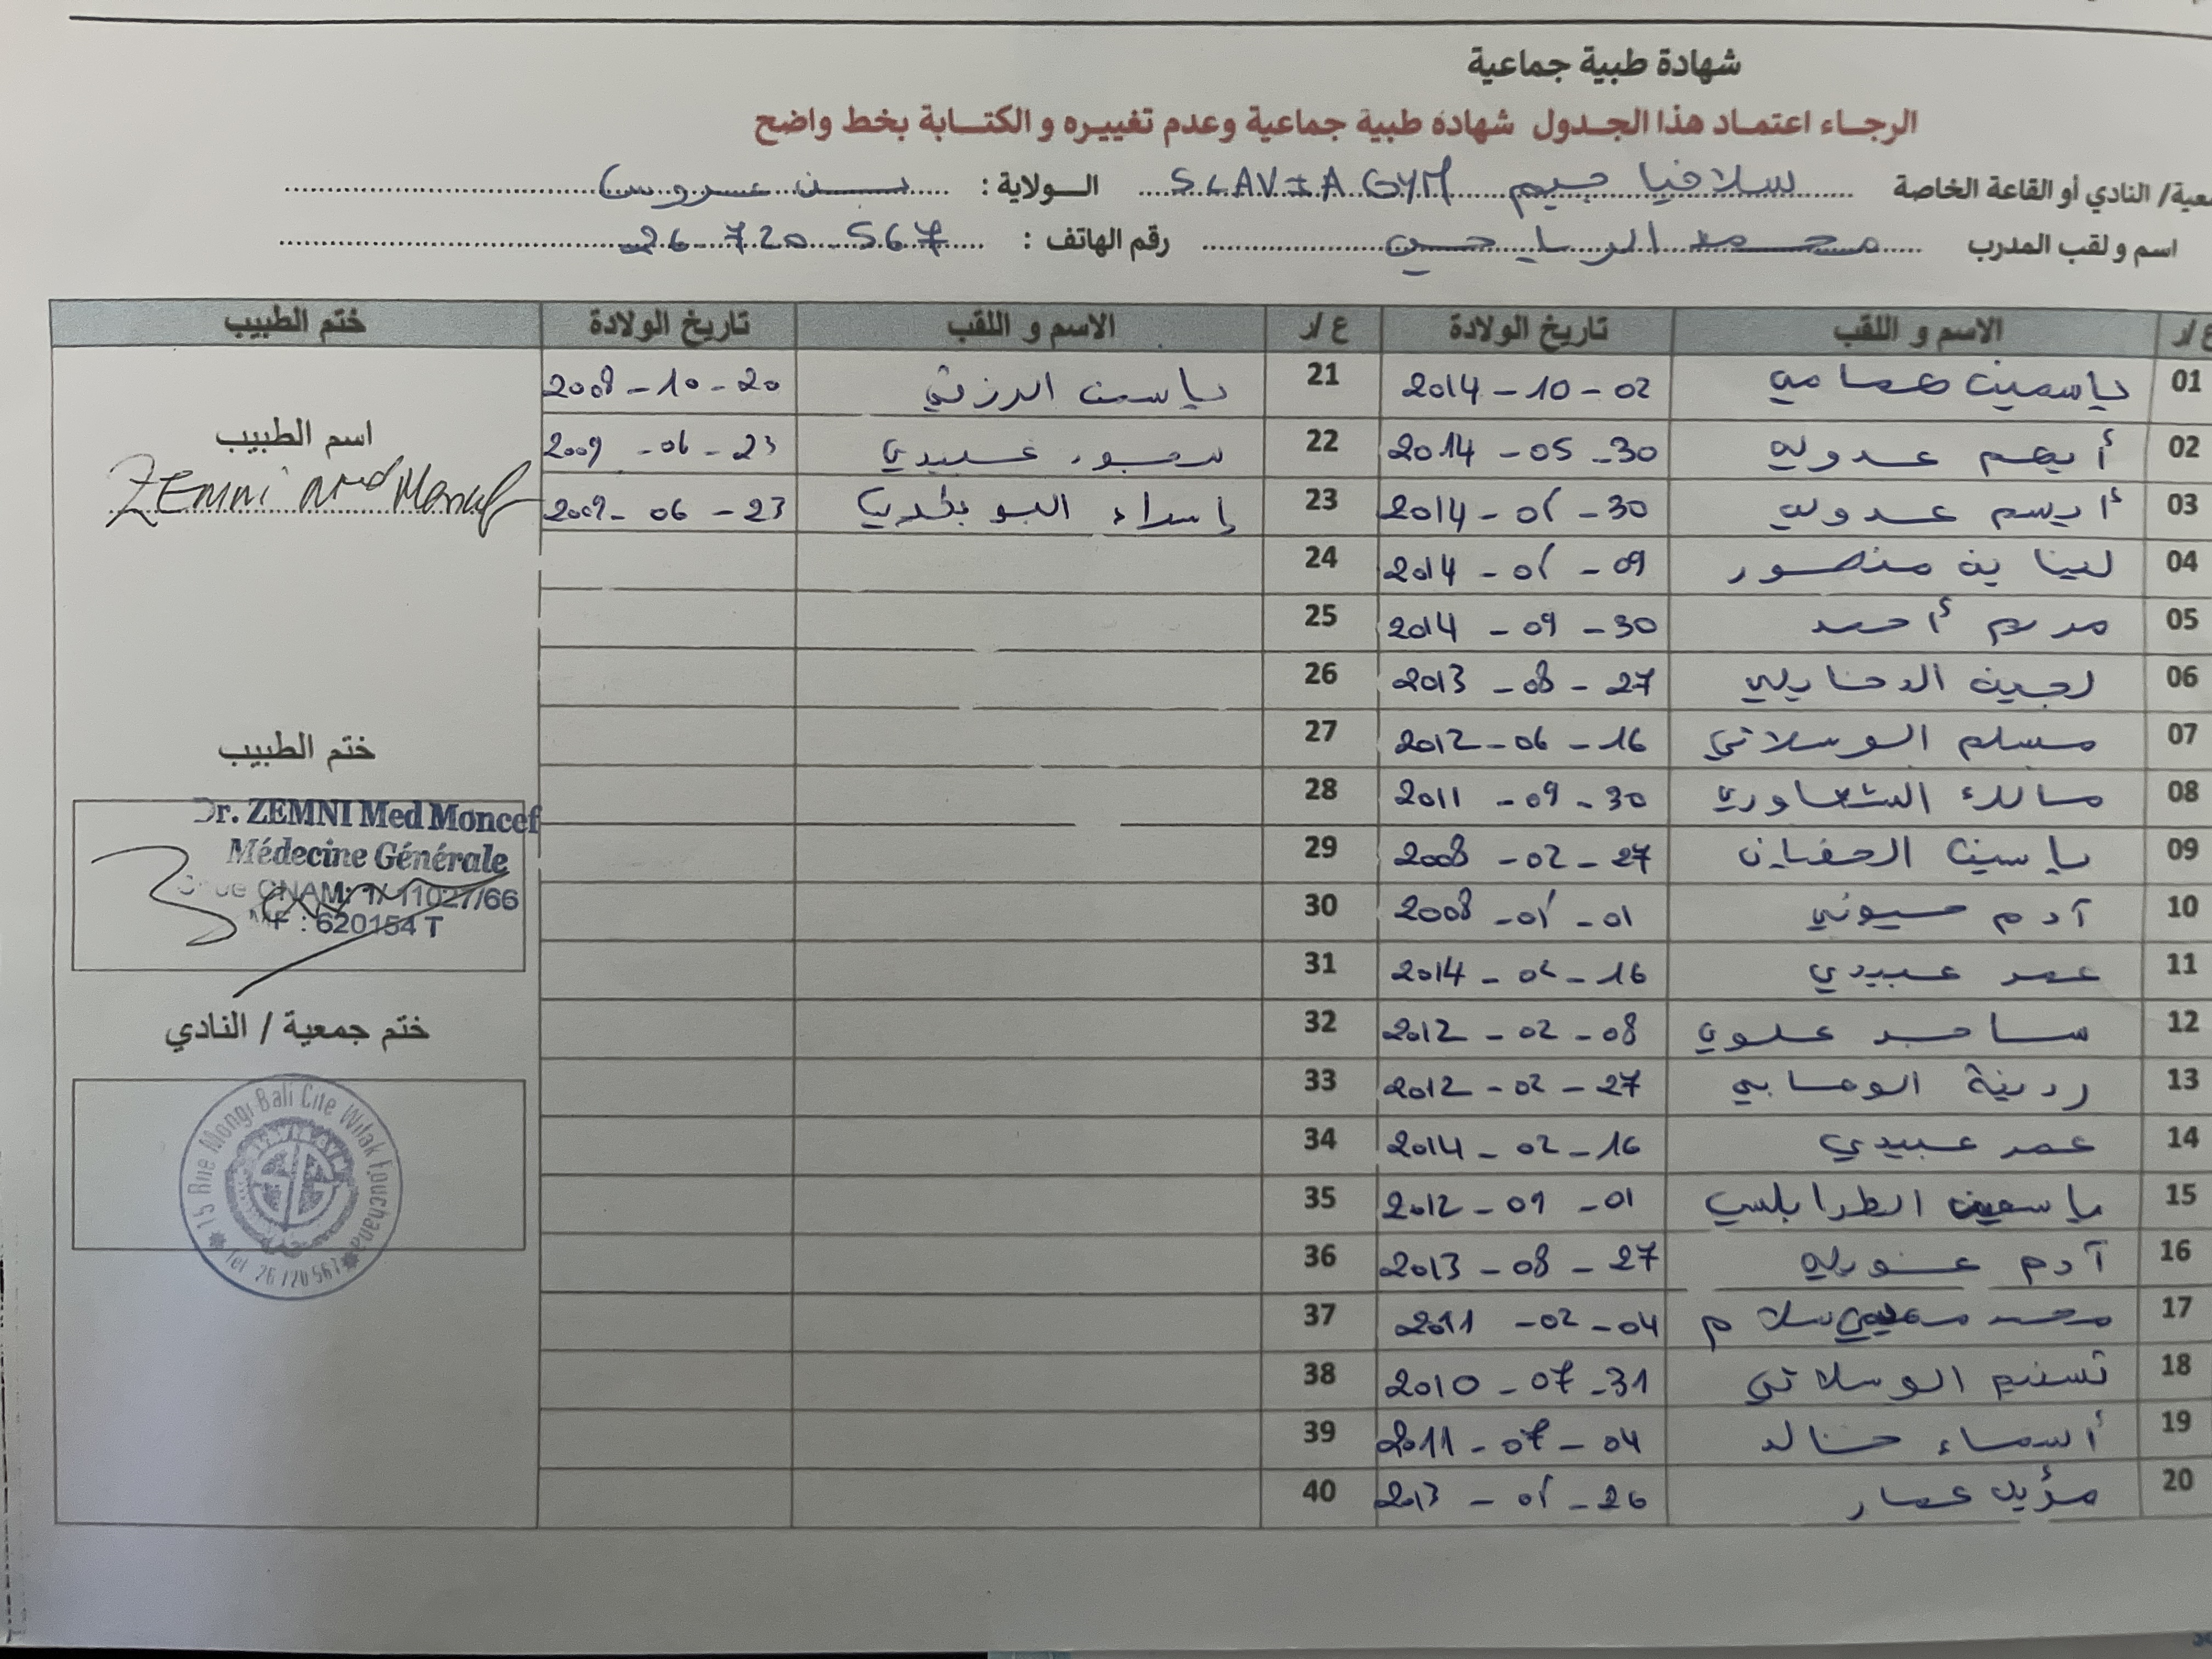 شهادة طبية جماعية
الرجاء اعتماد هذا الجدول شهادة طبية جماعية وعدم تغييره و الكتابة بخط واضح
النادي أو القاعة الخاصة سلافيا جيم SLAVIA GYM الولاية : بن عروس
اسم و لقب المدرب محمد رقم الهاتف : 26 720 567
ع/ر الاسم و اللقب تاريخ الولادة ع/ر الاسم و اللقب تاريخ الولادة ختم الطبيب
01 ياسمين همامي 2014-10-02 21 2008-10-20
02 أيهم عدولي 2014-05-30 22 عبيدي 2009-06-23
03 عدولي 2014 30 23 إسراء 2009-06-23
04 لينا بن منصور 2014 09 24
05 مريم أحمد 2014-09-30 25
06 لجين الدخايلي 2013-08-27 26
07 مسلم الوسلاتي 2012-06-16 27
08 2011-09-30 28
09 ياسين 2008-02-27 29
10 آدم 2008 01 30
11 عمر عبيدي 2014 16 31
12 ساجد علوي 2012-02-08 32
13 ردينة 2012-02-27 33
14 عمر عبيدي 2014-02-16 34
15 ياسمين الطرابلسي 2012-09-01 35
16 آدم 2013-08-27 36
17 محمد سلام 2011-02-04 37
18 تسنيم الوسلاتي 2010-07-31 38
19 أسماء خالد 2011-07-04 39
20 مؤيد عمار 2013 26 40
اسم الطبيب
ZEMNI Med Moncef
ختم الطبيب
Dr. ZEMNI Med Moncef
Médecine Générale
CNAM: 1/11027/66
MF : 620154 T
ختم جمعية / النادي
15 Rue Mongi Bali Cite Wifak Fouchana
Tel 26 720 567